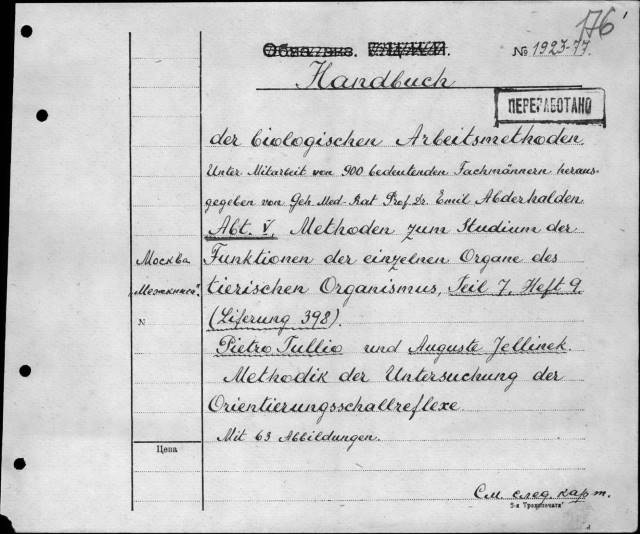 176
№ 1923-77.
Handbuch
ПЕРЕРАБОТАНО
der biologischen Arbeitsmethoden.
Unter Mitarbeit von 900 bedeutenden Fachmännern heraus-
gegeben von Geh. Med-Rat Prof. Dr. Emil Abderhalden.
Abt. V. Methoden zum Studium der
Москва Funktionen der einzelnen Organe des
„Межкнига". tierischen Organismus, Teil 7, Heft 9.
N (Liferung 398).
Pietro Tullio und Auguste Jellinek.
Methodik der Untersuchung der
Orientierungsschallreflexe.
Mit 63 Abbildungen.
Цена
См. след. карт.